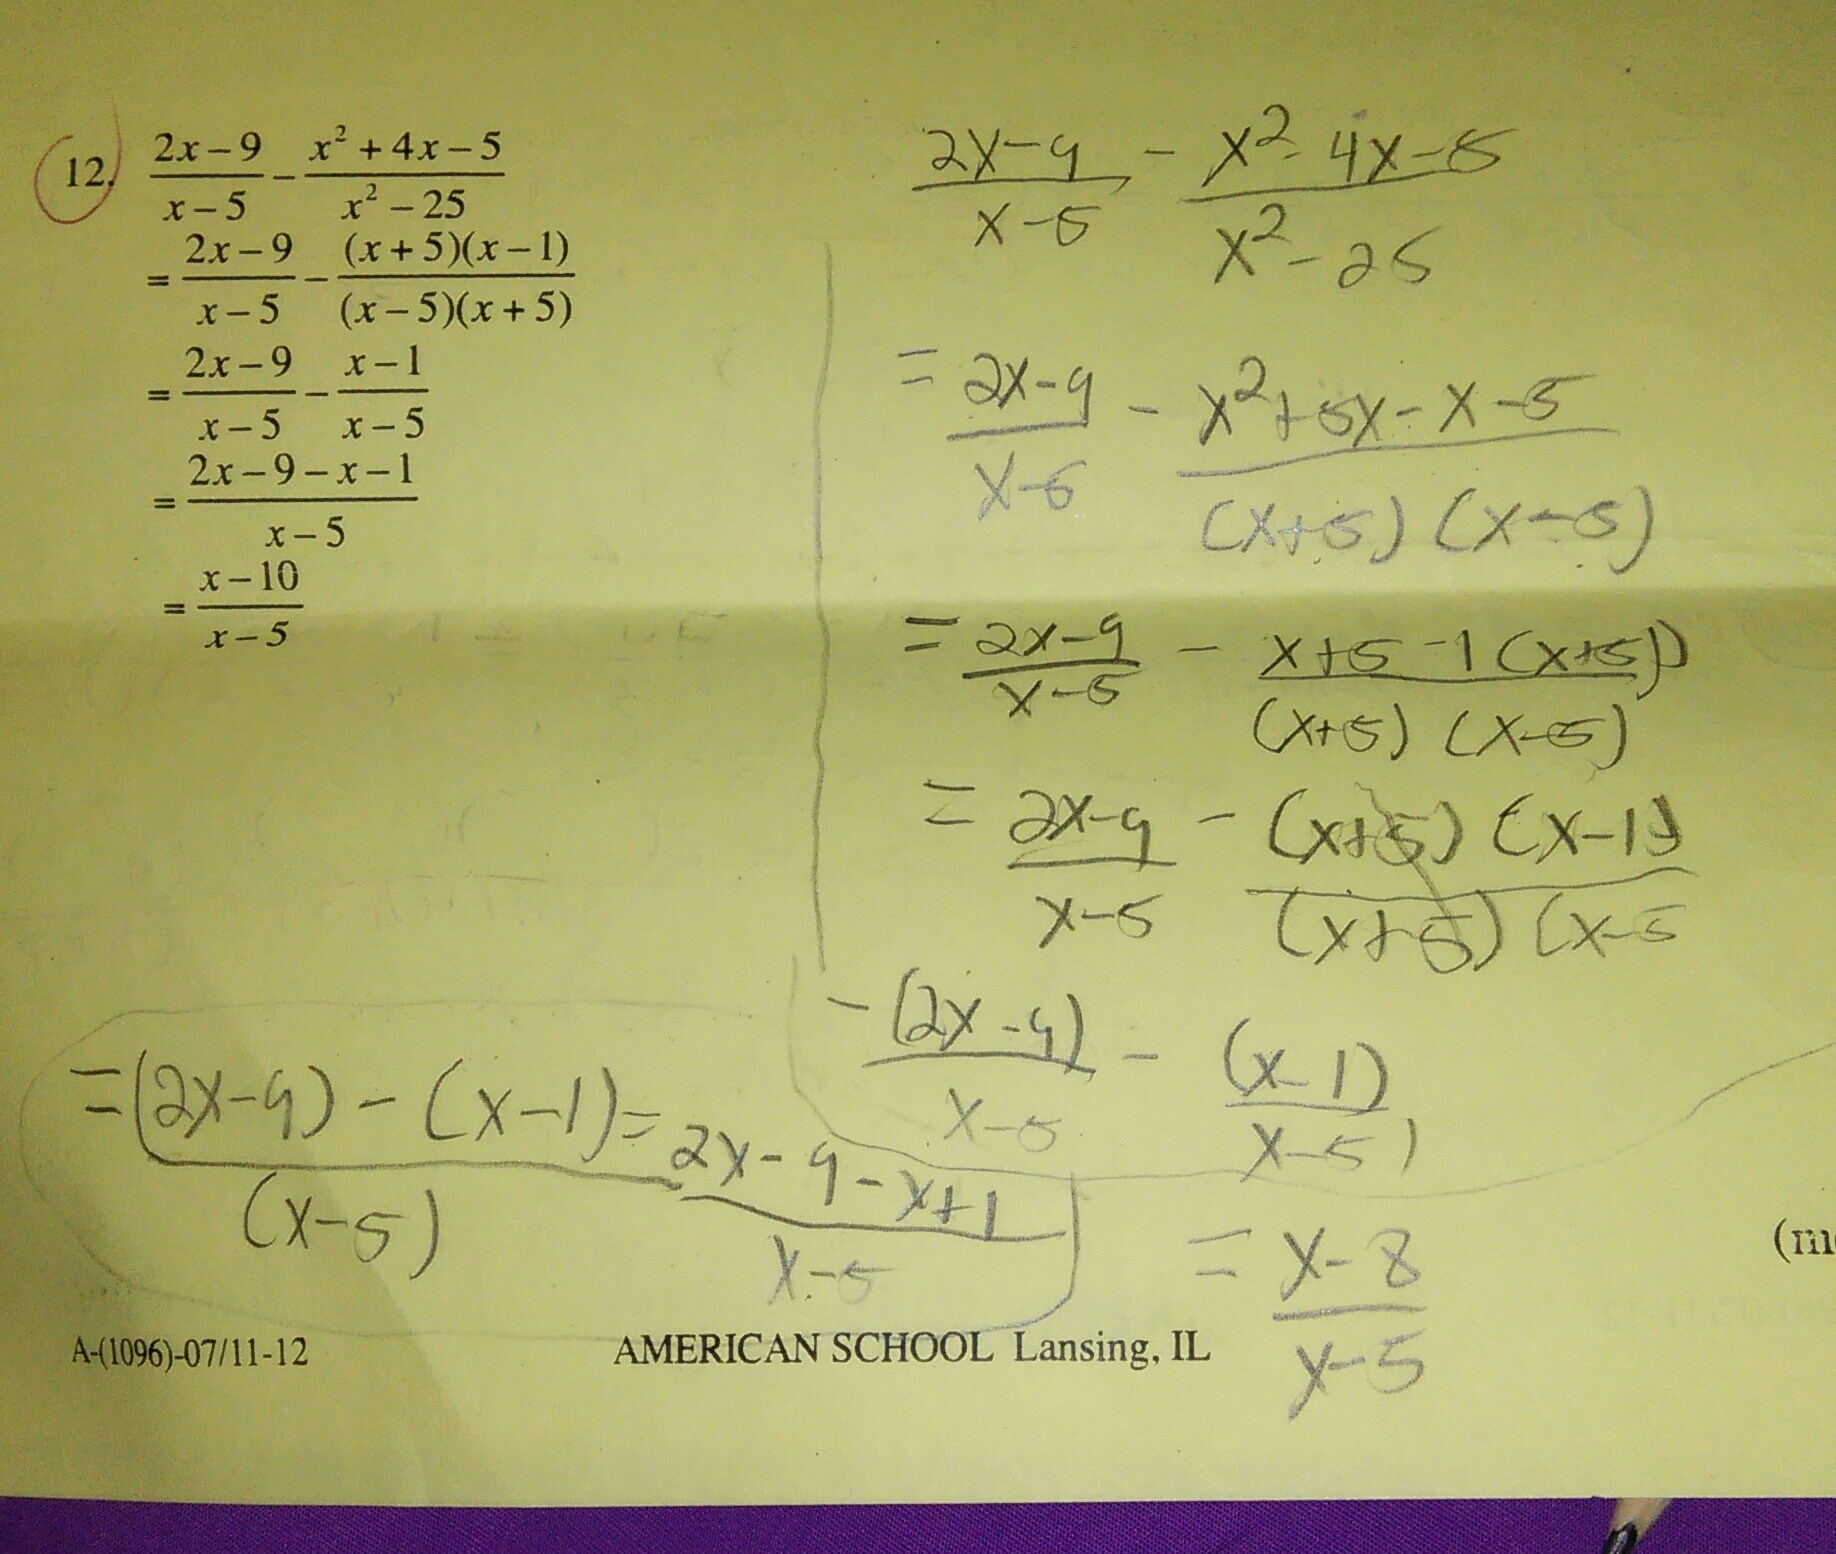 12. \frac{2x-9}{x-5} - \frac{x²+4x-5}{x²-25}
= \frac{2x-9}{x-5} - \frac{(x+5)(x-1)}{(x-5)(x+5)}
= \frac{2x-9}{x-5} - \frac{x-1}{x-5}
= \frac{2x-9-x-1}{x-5}
= \frac{x-10}{x-5}
\frac{2x-9}{x-5} - \frac{x²-4x-5}{x²-25}
= \frac{2x-9}{x-5} - \frac{x²+5x-x-5}{(x+5)(x-5)}
= \frac{2x-9}{x-5} - \frac{x+5-1(x+5))}{(x+5)(x-5)}
= \frac{2x-9}{x-5} - \frac{(x+5)(x-1)}{(x+5)(x-5}
- \frac{(2x-9)}{x-5} - \frac{(x-1)}{x-5)}
= \frac{(2x-9)-(x-1)}{(x-5)} = \frac{2x-9-x+1}{x-5}
= \frac{x-8}{x-5}
A-(1096)-07/11-12
AMERICAN SCHOOL Lansing, IL